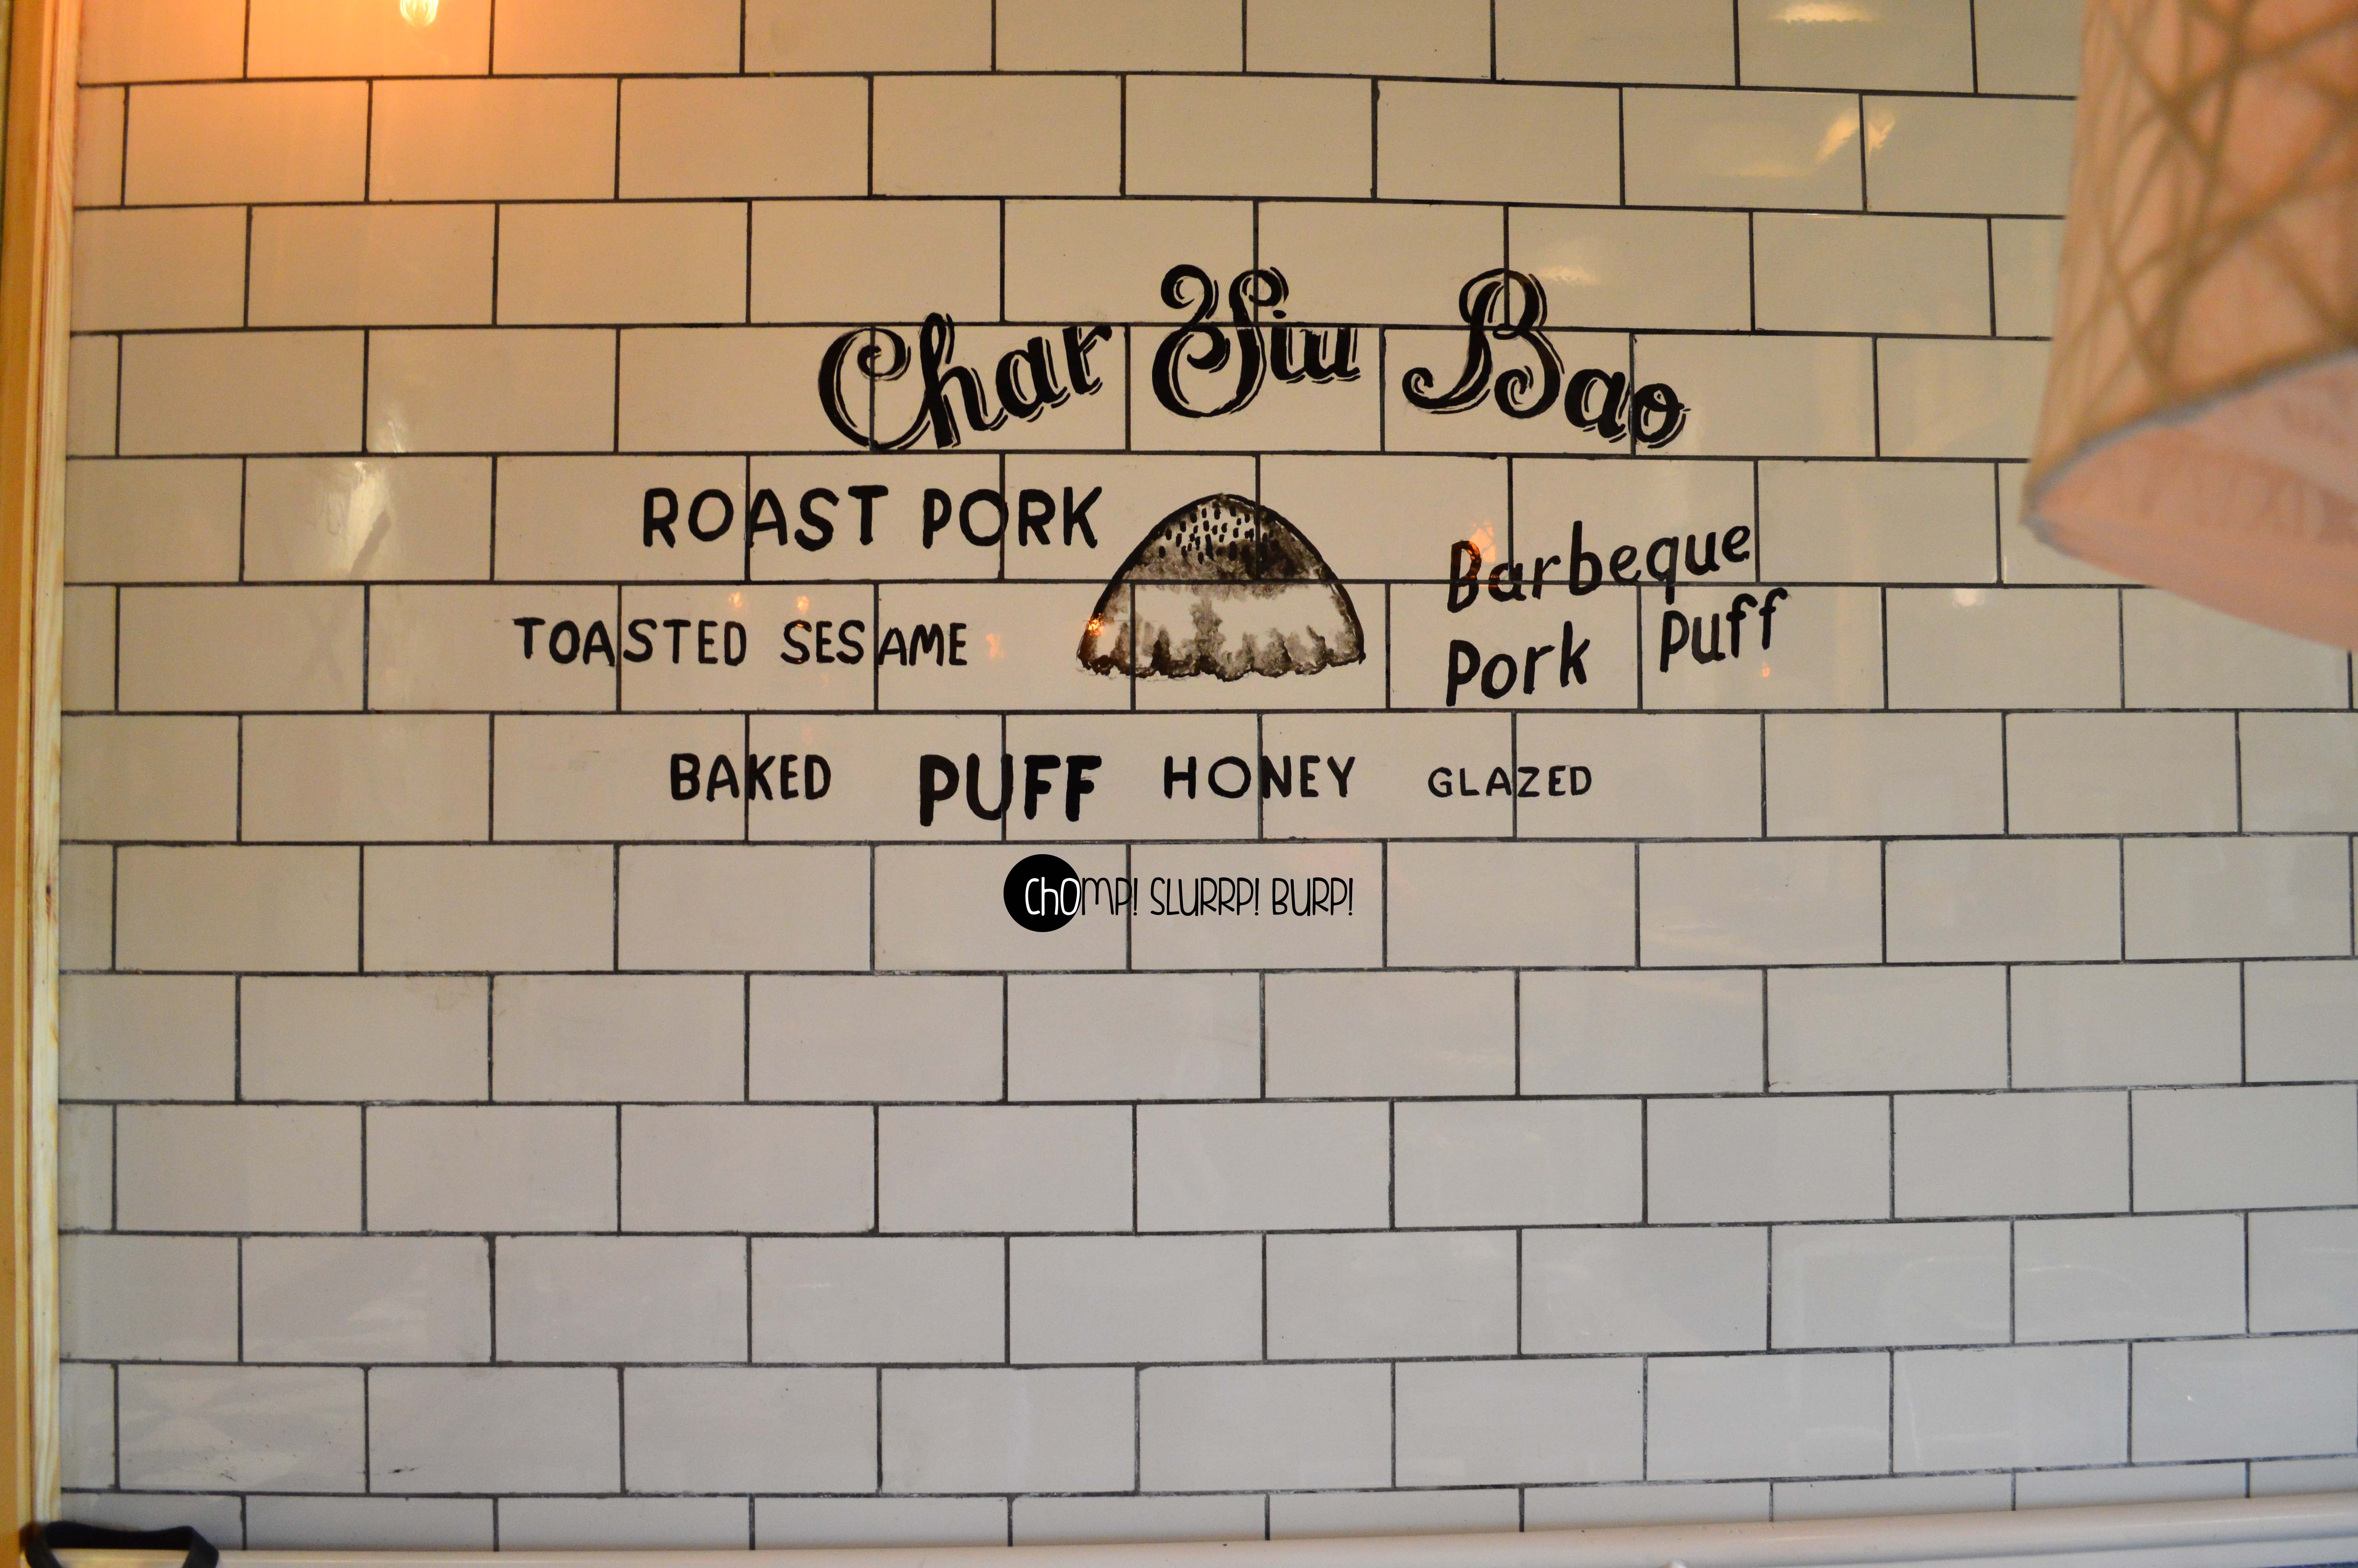 Char Siu Bao
ROAST PORK
Barbeque
TOASTED SESAME
Pork Puff
BAKED PUFF HONEY GLAZED
ChOMP! SLURRP! BURP!